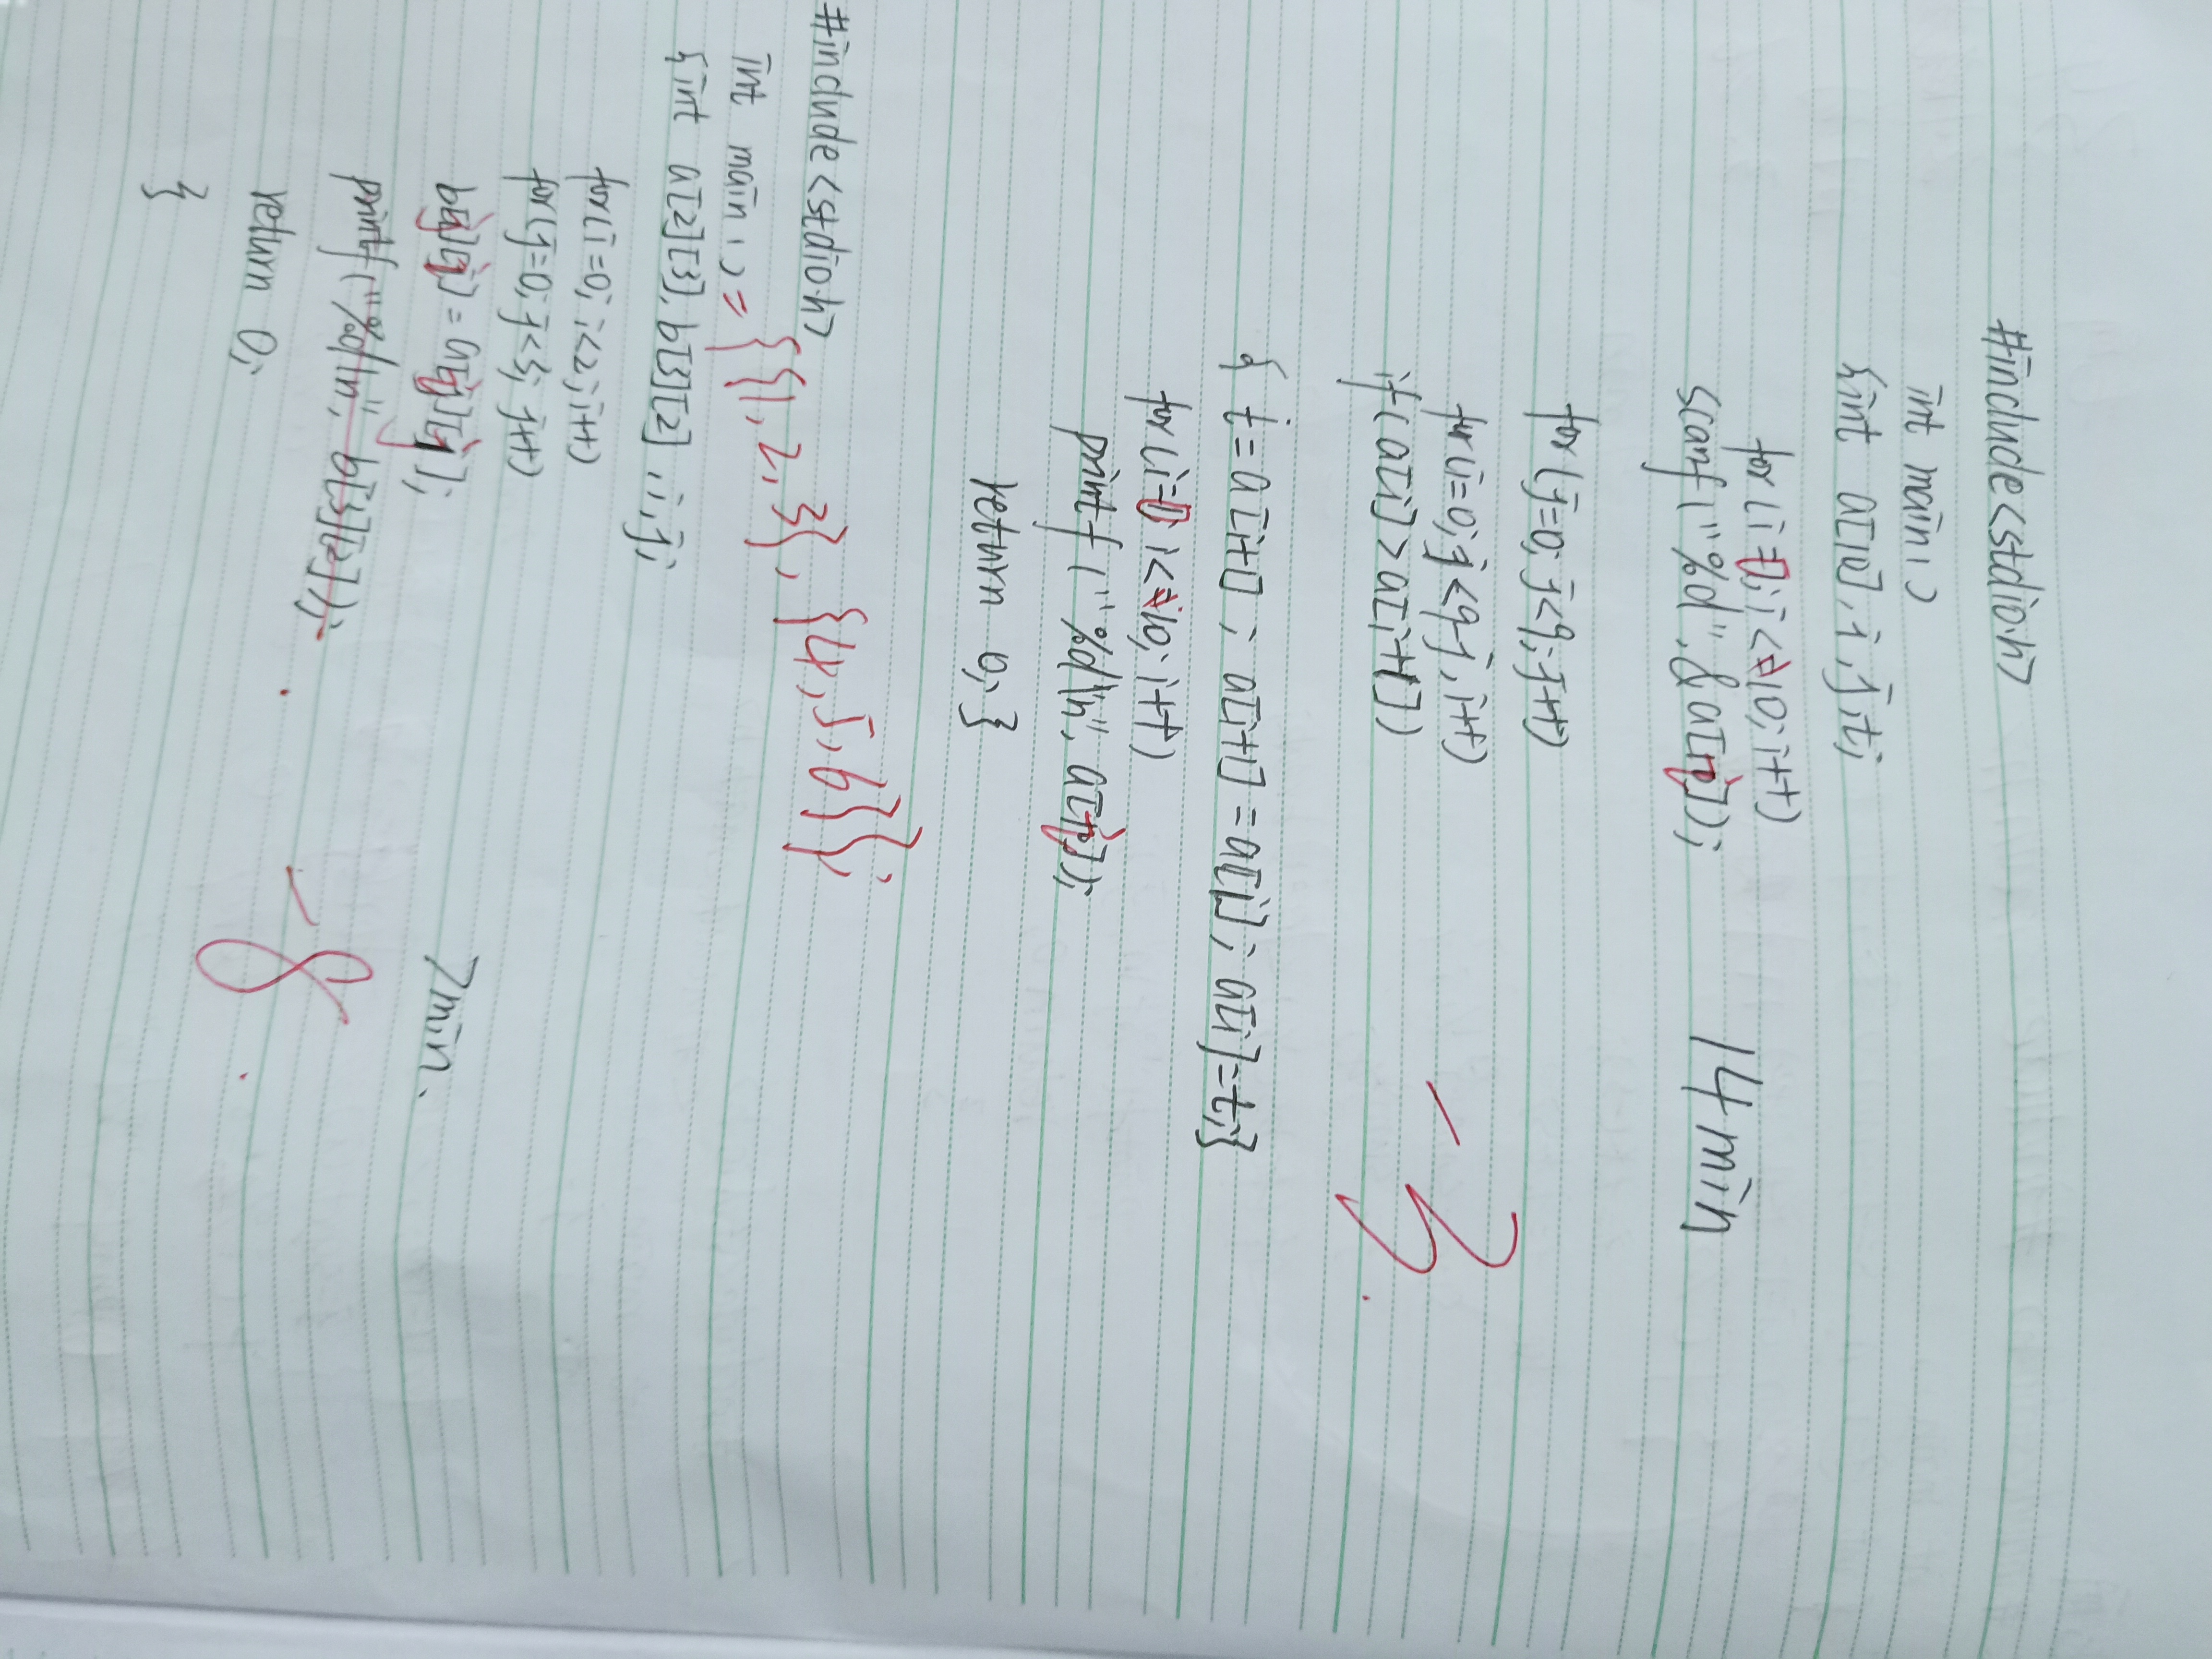 #include<stdio.h>
int main()
{int a[10],i,j,t;
for(i=0;i<10;i++)
scanf("%d",&a[i]);
14min
for(j=0;j<9;j++)
for(i=0;j<9-j,i++)
if(a[i]>a[i+1])
-3
{t=a[i+1];a[i+1]=a[i];a[i]=t;}
for(i=0;i<10;i++)
printf("%d\n",a[i]);
return 0;}
#include<stdio.h>
int main()
={{1,2,3},{4,5,6}};
{int a[2][3],b[3][2],i,j;
for(i=0;i<2;i++)
for(j=0;j<3;j++)
b[j][i]=a[i][j];
7min.
printf("%d\n",b[3][2]);
-8
return 0;
}